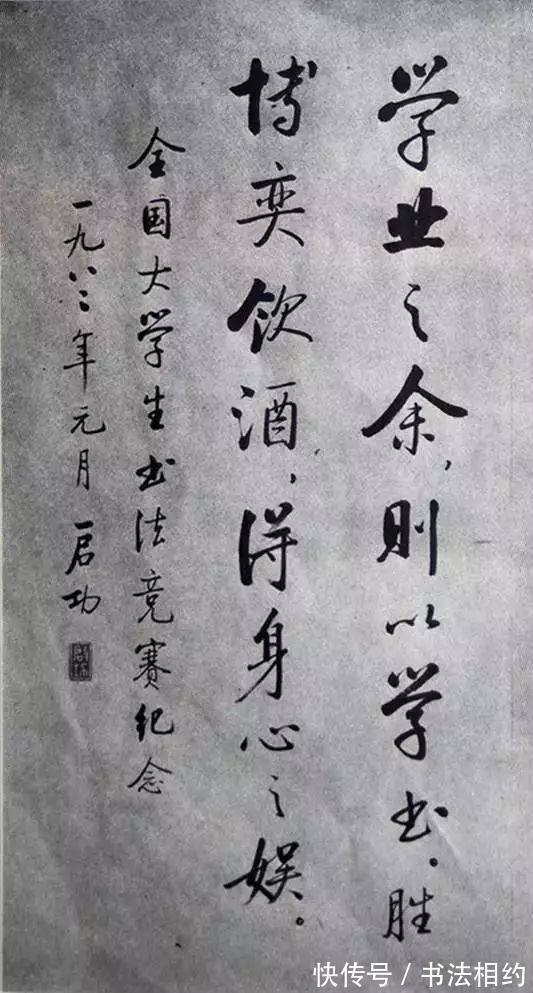 学业之余，则以学书，胜
博奕饮酒，得身心之娱。
全国大学生书法竞赛纪念
一九八二年元月 启功
快传号 / 书法相约